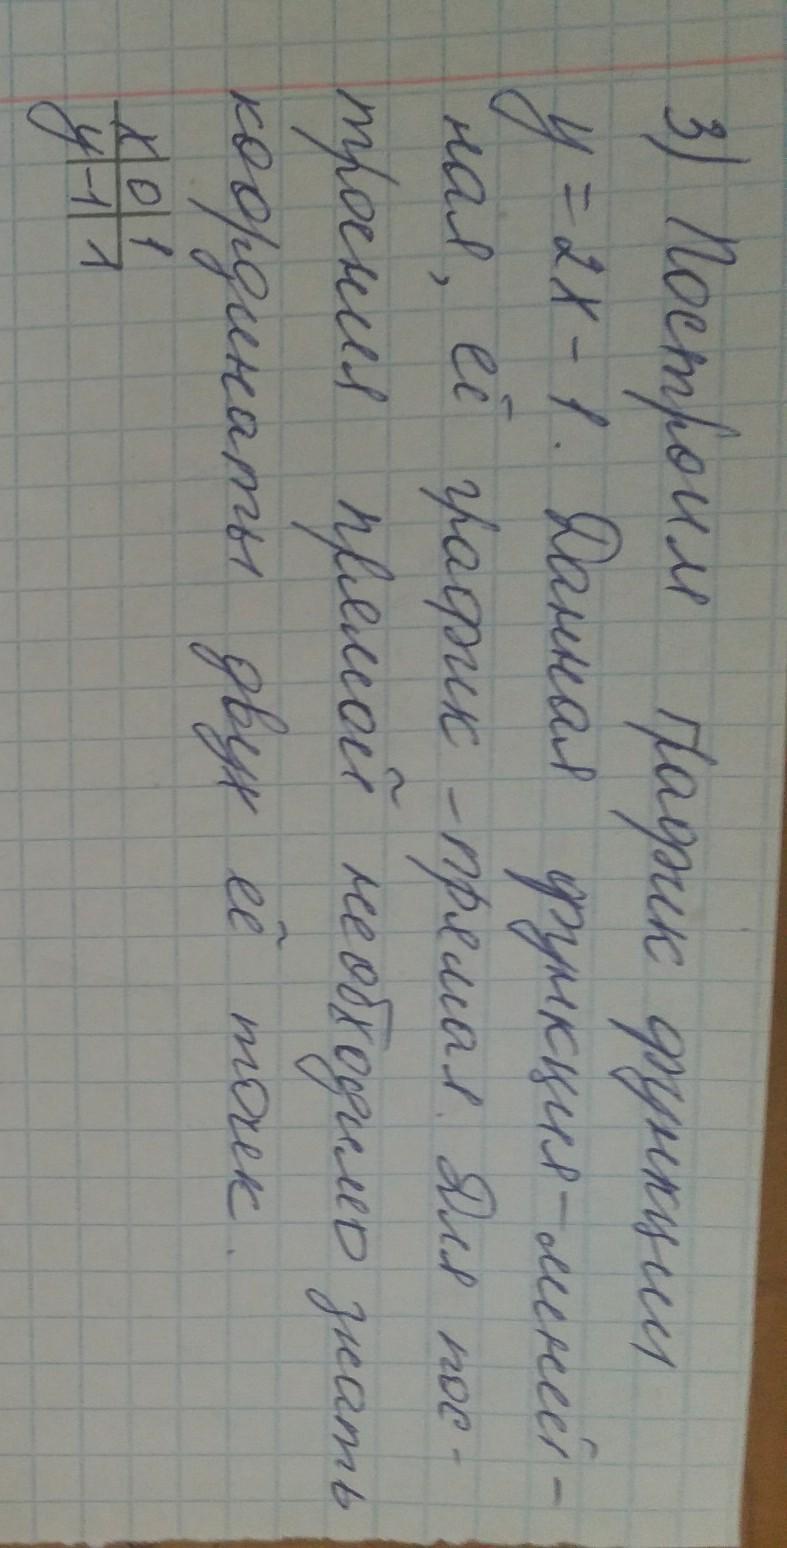 3) Построим график функции
y = 2x - 1. Данная функция - линей-
ная, её график - прямая. Для пос-
троения прямой необходимо знать
координаты двух её точек.
x 0 1
y -1 1